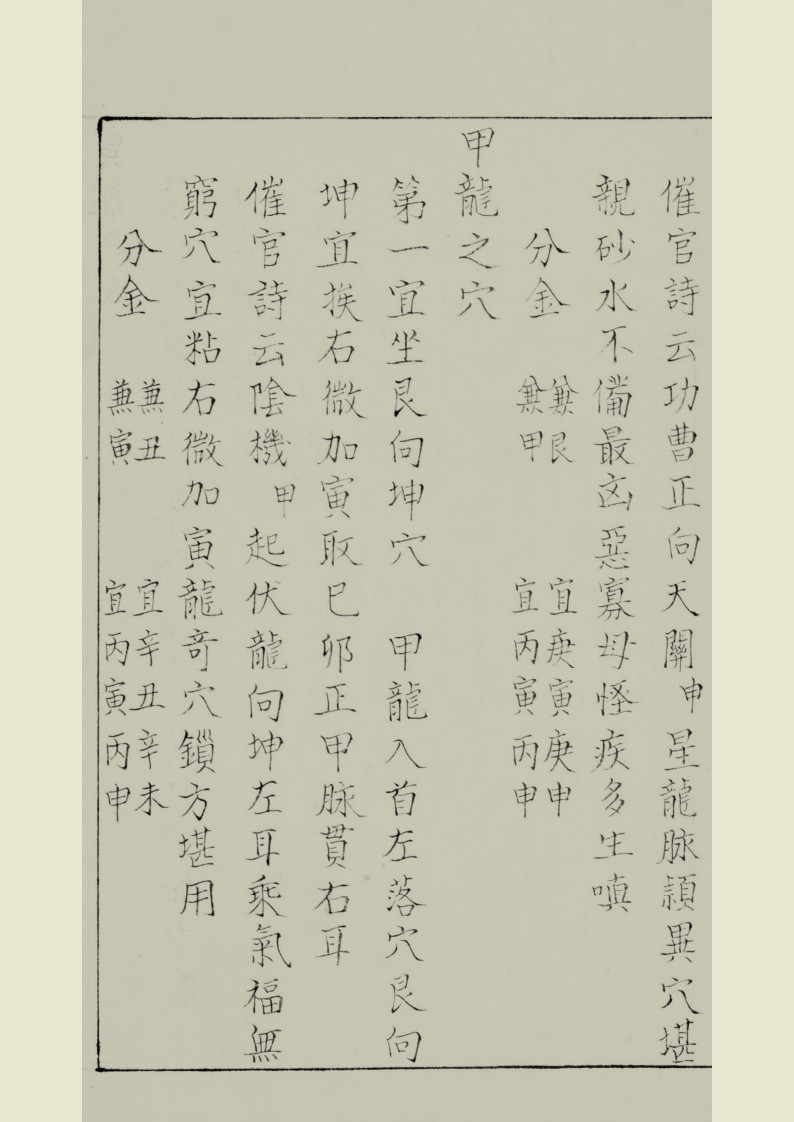 催官詩云功曹正向天關申星龍脉頴異穴堪
親砂水不備最凶惡寡母怪疾多生嗔
分金 兼艮 宜庚寅庚申
兼甲 宜丙寅丙申
甲龍之穴
第一宜坐艮向坤穴 甲龍入首左落穴艮向
坤宜挨右微加寅取巳卯正甲脉貫右耳
催官詩云陰機甲起伏龍向坤左耳乘氣福無
窮穴宜粘右微加寅龍竒穴鎖方堪用
分金 兼丑 宜辛丑辛未
兼寅 宜丙寅丙申